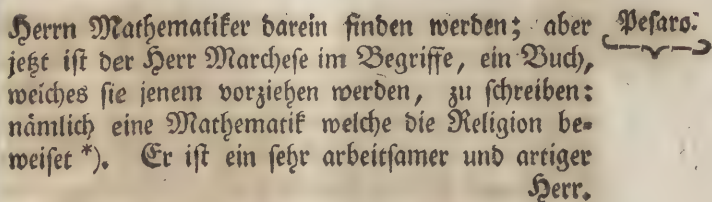 Herrn Mathematiker darein finden werden; aber
Pesaro.
jetzt ist der Herr Marchese im Begriffe, ein Buch,
weiches sie jenem vorziehen werden, zu schreiben:
nämlich eine Mathematik welche die Religion be-
weiset *). Er ist ein sehr arbeitsamer und artiger
Herr.